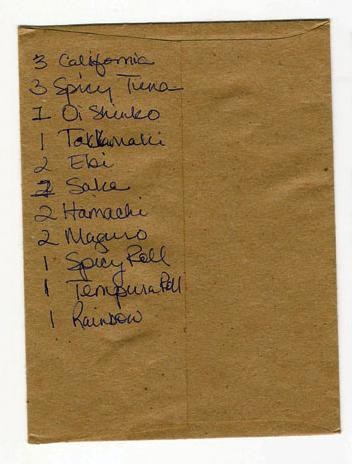 3 California
3 Spicy Tuna
1 Oi Shinko
1 Tekkamaki
2 Ebi
2 Sake
2 Hamachi
2 Maguro
1 Spicy Roll
1 Tempura Roll
1 Rainbow